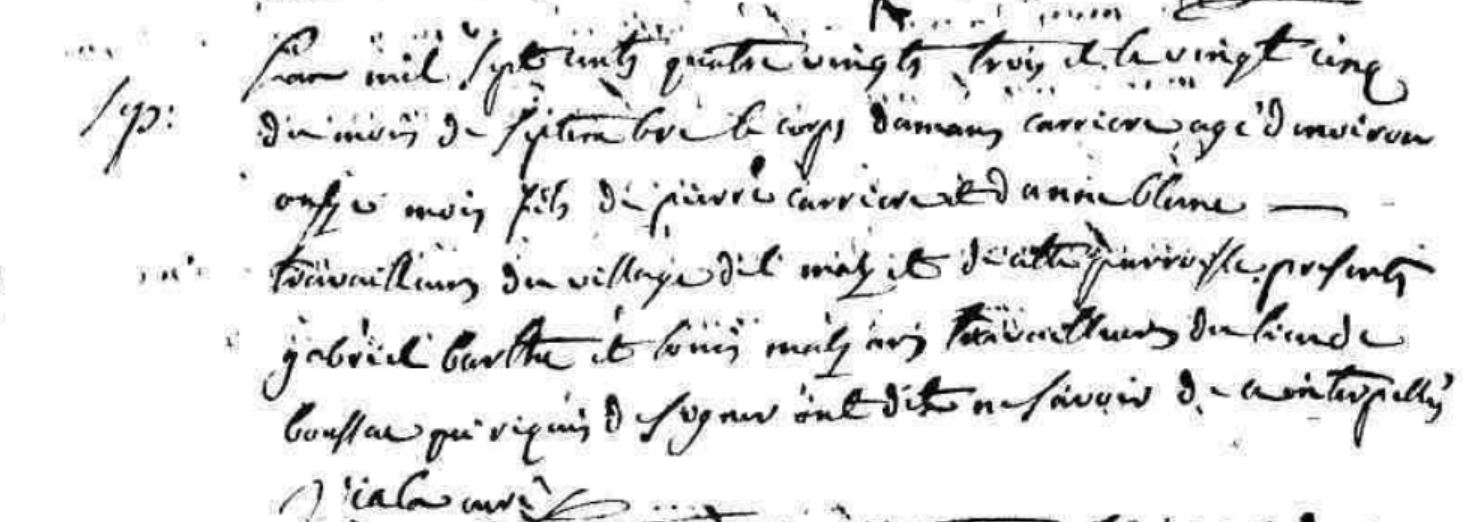 Sep:
lan mil sept cents quatre vingts trois et le vingt cinq
du mois de septembre le corps damans carriere agé denviron
onse mois fils de pierre carriere et danne blanc
travailleurs du village del mas et de cette parroisse presents
gabriel barthe et louis mas aussi travailleurs du lieu de
boussac qui requis de signer ont dit ne savoir de ce interpellés
curé